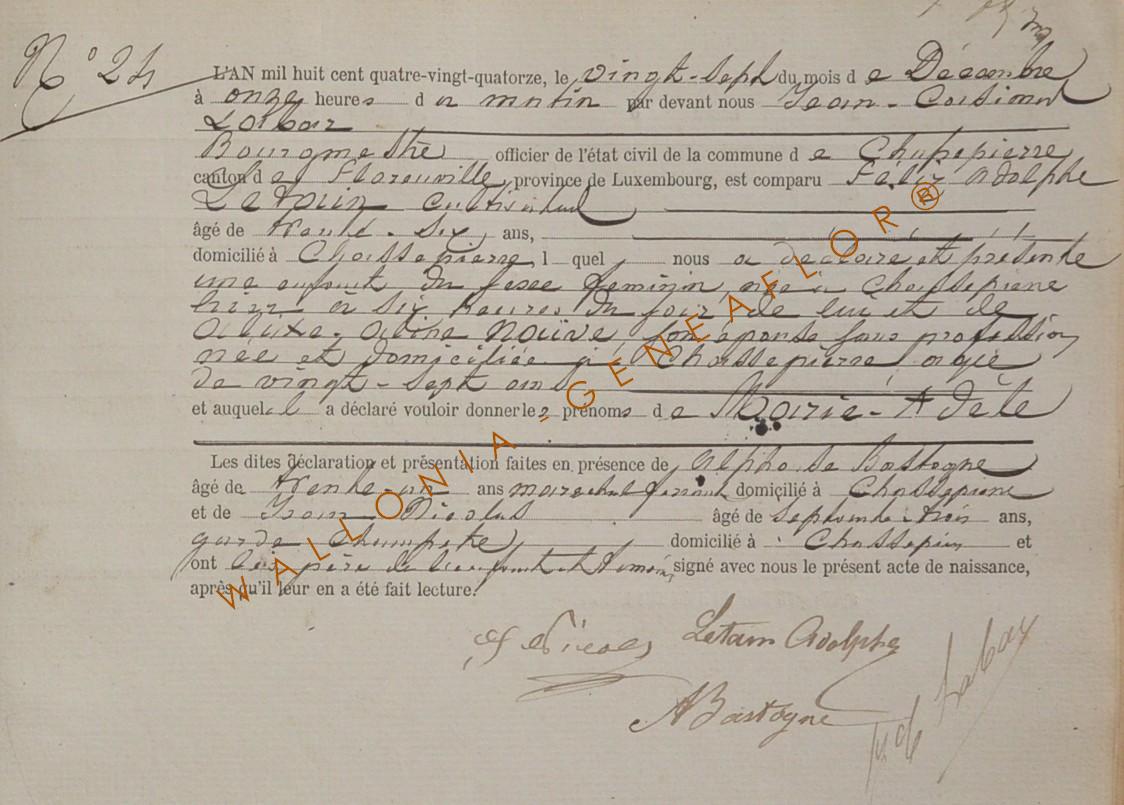 N° 24
L'AN mil huit cent quatre-vingt-quatorze, le vingt-sept du mois d e Décembre
à onze heures d u matin par devant nous Jean-Casimir
Labar
Bourgmestre officier de l'état civil de la commune d e Chassepierre
canton d e Florenville, province de Luxembourg, est comparu Félix Adolphe
Letain cultivateur
âgé de trente-six ans,
domicilié à Chassepierre, l quel nous a déclaré et présenté
une enfant du sexe féminin, née à Chassepierre
hier à six heures du soir de lui et de
son épouse sans profession
née et domiciliée à Chassepierre âgée
de vingt-sept ans
et auquel l a déclaré vouloir donner les prénoms d e Marie-Adèle
Les dites déclaration et présentation faites en présence de Alphonse Bastogne
âgé de trente-un ans maréchal ferrant domicilié à Chassepierre
et de Jean Nicolas âgé de septante-trois ans,
garde champêtre domicilié à Chassepierre et
ont les père de l'enfant et témoins signé avec nous le présent acte de naissance,
après qu'il leur en a été fait lecture.
J Nicolas Letain Adolphe
A Bastogne
J. C. Labar
WALLONIA - GENEAFLOR®